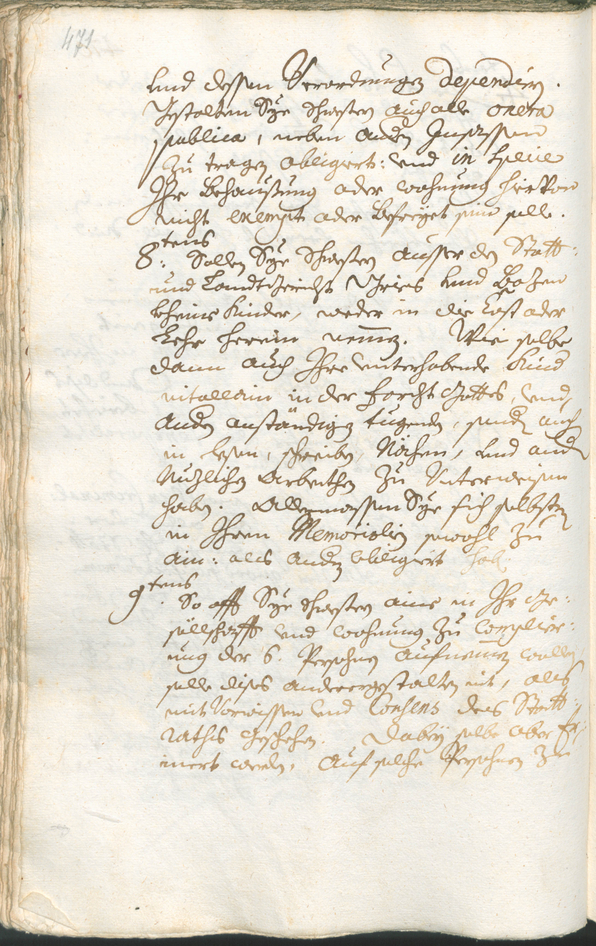 471
und dessen Verordnungen dependiern.
Gestalten Sye Schwestern auch alle onera
publica, neben andern Innsassen
zu tragen obligiert: und in specie
Ihr Behausung oder wohnung hiervon
nicht exempt oder befreyet sein solle.
8:tens Sollen Sye Schwestern ausser der Statt:
und Landtgerichts Gries und Bozen
kheine Kinder, weder in die Cost oder
Lehr herein nemmen. Wie selbe
dann auch Ihre unterhabende Kind
nit allain in der forcht Gottes, und
andern anständigen tugenden, sondern auch
in lesen, schreiben, Nähen, und andern
Nuzlichen Arbeithen zu Unterweisen
haben. Allermassen Sye sich selbsten
in Ihren Memorialien sowohl zu
ain: als andern obligiert hab.
9tens. So offt Sye Schwestern aine in Ihr Ge:
sellschafft und wohnung zu Complier:
ung der 6. Persohnen aufnemen wollen
solle dises anderergestalten nit, als
mit Vorwissen und Consens des Statt:
raths geschehen. Dabey selbe aber
iniert werden, auf solche Persohnen zu